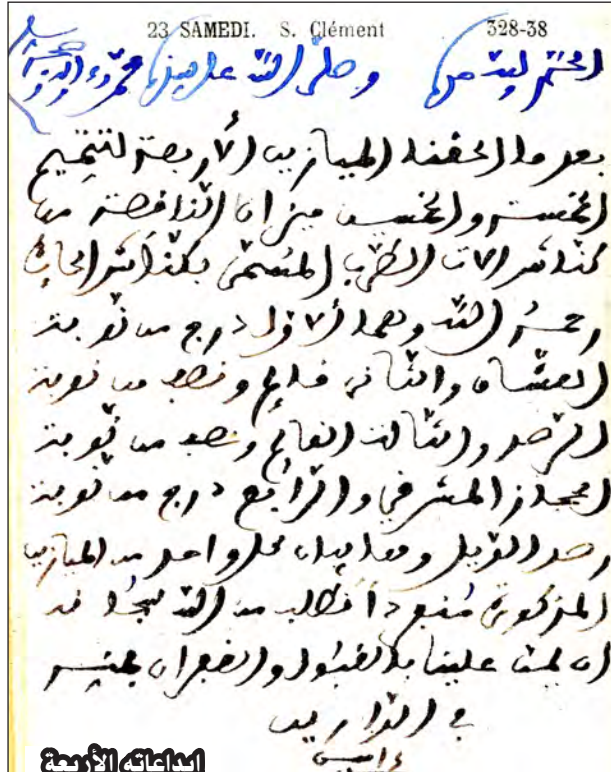 23 SAMEDI. S. Clément 328-38
الحمد لله وصلى الله على
بعد ما ألحقنا الميازين الأربعة لتتميم
الخمسة والخمسين ميزانا الناقصة من
كناش آلات الطرب المسمى بكناش الحائك
رحمه الله وهما الأول درج من نوبة
العشاق والثاني قائم ونصف من نوبة
الرصد والثالث القائم ونصف من نوبة
الحجاز المشرقي والرابع درج من نوبة
رصد الذيل ومعا بيان كل واحد من الميازين
المذكورة منفردا أطلب من الله سبحانه
ان يمن علينا بالقبول والغفران بمنه
في الدارين
ءامين
إبداعاته الأربعة